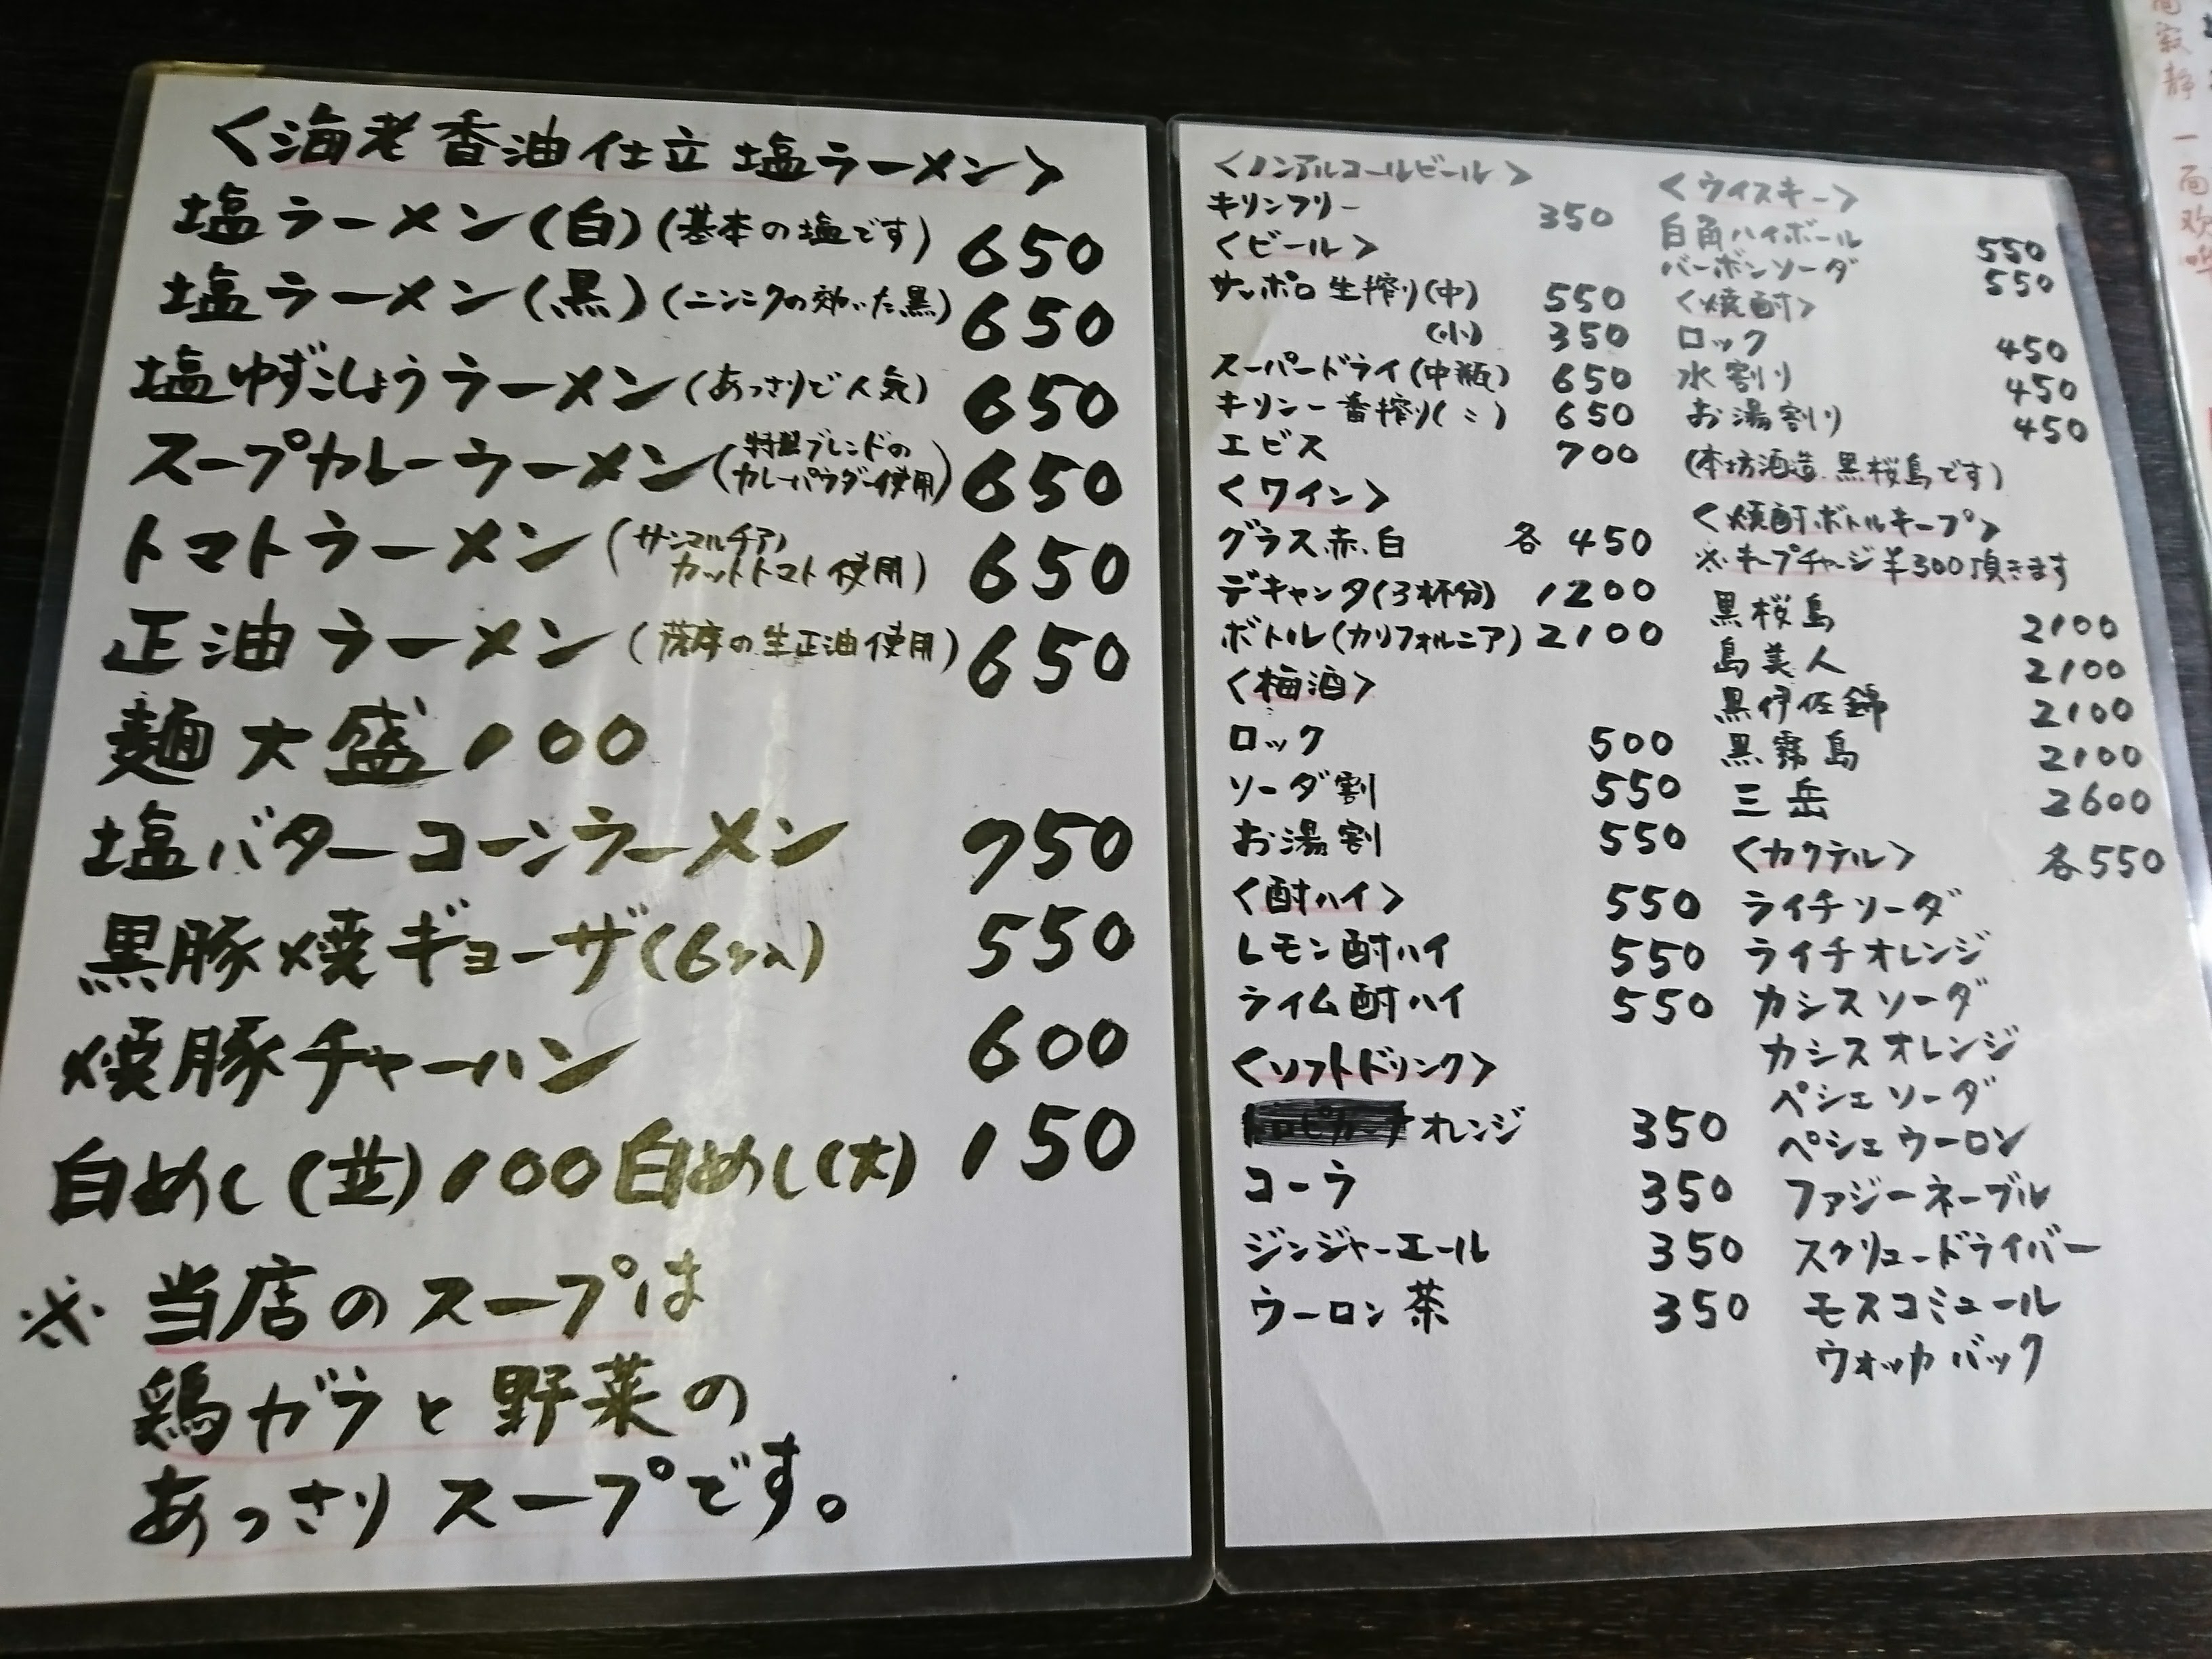 ＜海老香油仕立 塩ラーメン＞
塩ラーメン(白)(基本の塩です) 650
塩ラーメン(黒)(ニンニクの効いた黒) 650
塩ゆずこしょうラーメン(あっさりで人気) 650
スープカレーラーメン(特製ブレンドの
カレーパウダー使用) 650
トマトラーメン(サンマルチア
カットトマト使用) 650
正油ラーメン(薩摩の生正油使用) 650
麺大盛 100
塩バターコーンラーメン 750
黒豚焼ギョーザ(6ヶ入) 550
焼豚チャーハン 600
白めし(並) 100 白めし(大) 150
※当店のスープは
鶏ガラと野菜の
あっさりスープです。
＜ノンアルコールビール＞
キリンフリー 350
＜ビール＞
サッポロ生搾り(中) 550
(小) 350
スーパードライ(中瓶) 650
キリン一番搾り(〃) 650
エビス 700
＜ワイン＞
グラス赤.白 各450
デキャンタ(3杯分) 1200
ボトル(カリフォルニア) 2100
＜梅酒＞
ロック 500
ソーダ割 550
お湯割 550
＜酎ハイ＞ 550
レモン酎ハイ 550
ライム酎ハイ 550
＜ソフトドリンク＞
オレンジ 350
コーラ 350
ジンジャーエール 350
ウーロン茶 350
＜ウイスキー＞
白角ハイボール 550
バーボンソーダ 550
＜焼酎＞
ロック 450
水割り 450
お湯割り 450
(本坊酒造.黒桜島です)
＜焼酎ボトルキープ＞
※キープチャージ¥300頂きます
黒桜島 2100
島美人 2100
黒伊佐錦 2100
黒霧島 2100
三岳 2600
＜カクテル＞ 各550
ライチソーダ
ライチオレンジ
カシスソーダ
カシスオレンジ
ペシェソーダ
ペシェウーロン
ファジーネーブル
スクリュードライバー
モスコミュール
ウォッカバック
寂静
一面欢